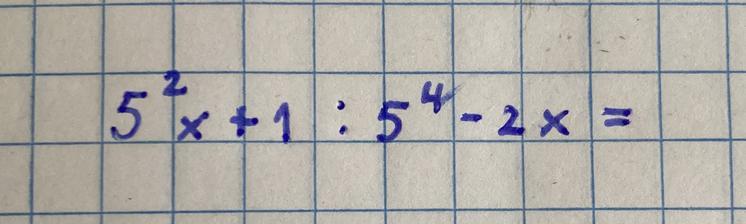 5²x + 1 : 5⁴ - 2x =